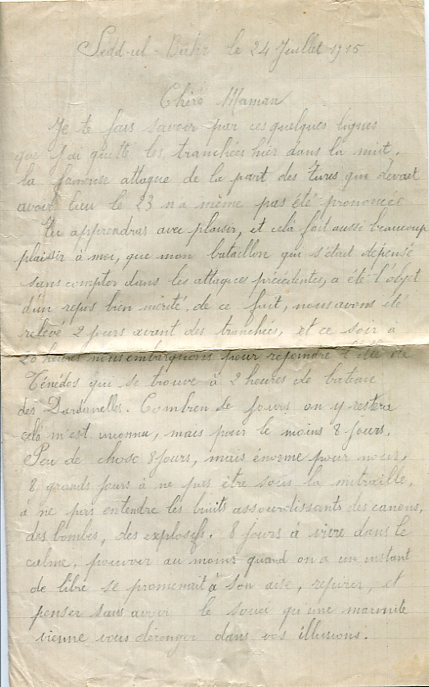 Sedd-ul-Bahr le 24 Juillet 1915
Chère Maman
Je te fais savoir par ces quelques lignes
que j'ai quitté les tranchées hier dans la nuit.
la fameuse attaque de la part des Turcs qui devait
avoir lieu le 23 n'a même pas été prononcée
Tu apprendras avec plaisir, et celà fait aussi beaucoup
plaisir à moi, que mon bataillon qui s'était dépensé
sans compter dans les attaques précédentes, a été l'objet
d'un repos bien mérité, de ce fait, nous avons été
relevé 2 jours avant des tranchées, et ce soir à
20 heures nous embarquons pour rejoindre l'île de
Ténédos qui se trouve à 2 heures de bateau
des Dardanelles. Combien de jours on y restera
cela m'est inconnu, mais pour le moins 8 jours.
Peu de chose 8 jours, mais énorme pour nous,
8 grands jours à ne pas être sous la mitraille,
à ne pas entendre les bruits assourdissants des canons,
des bombes, des explosifs. 8 jours à vivre dans le
calme, pouvoir au moins quand on a un instant
de libre se promener à son aise, rêver, et
penser sans avoir le souci qu'une marmite
vienne vous déranger dans vos illusions.